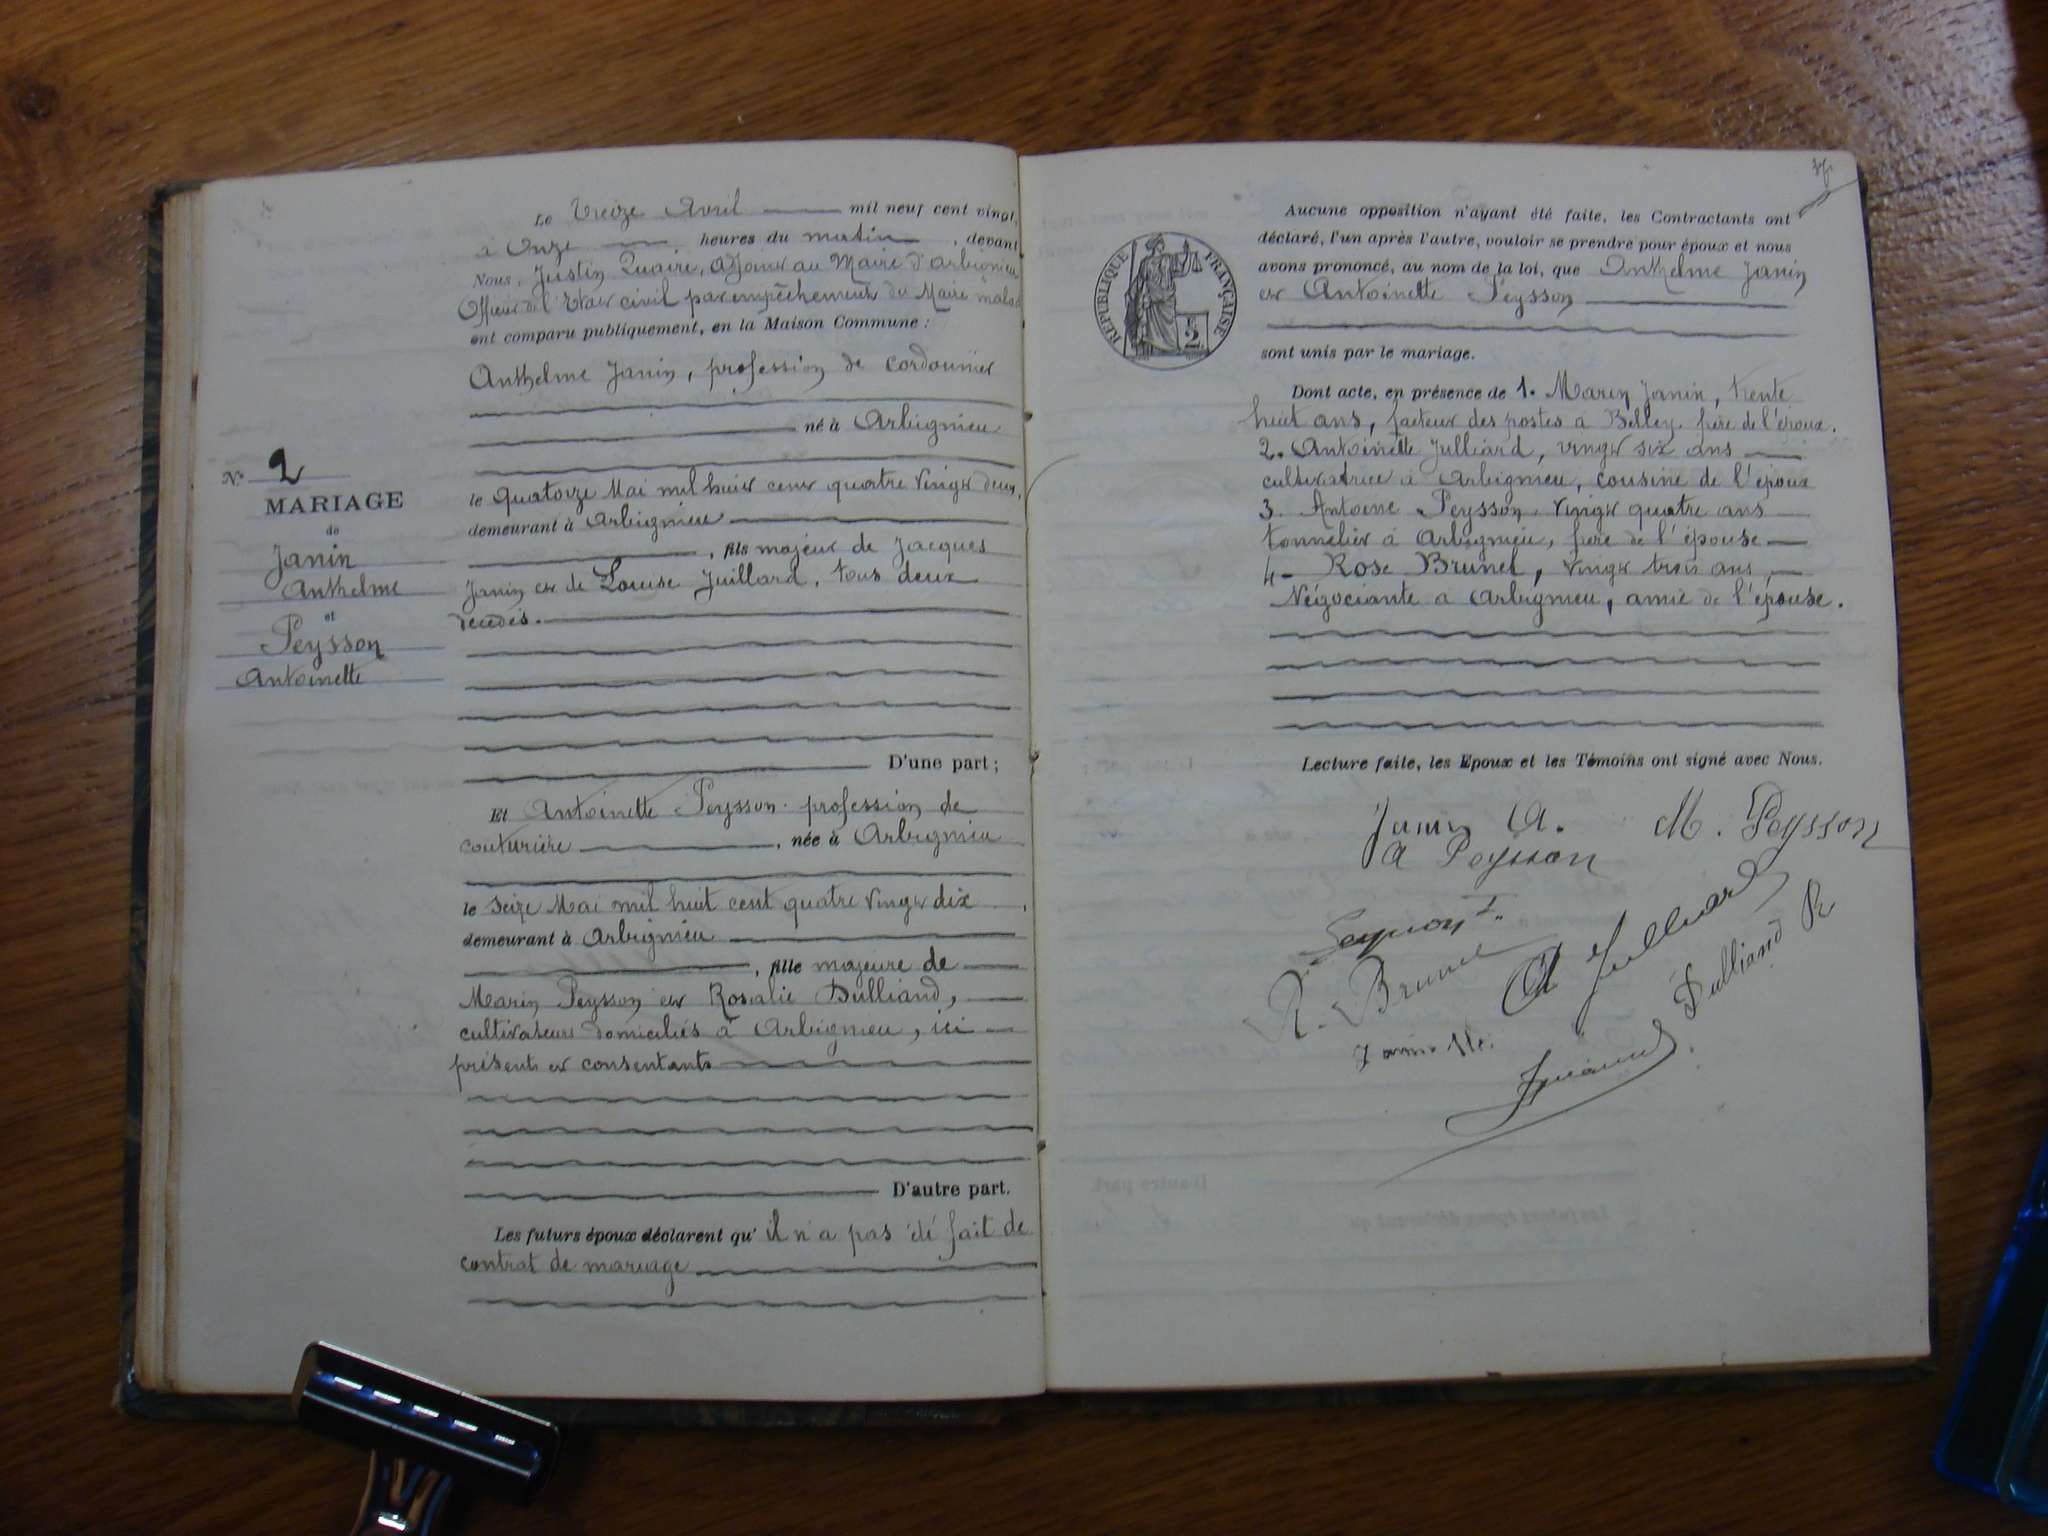 Le treize Avril mil neuf cent vingt,
à Onze heures du matin, devant
Nous, Justin Quaire, Adjoint au Maire d'Arbignieu
Officier de l'Etat civil par empêchement du Maire malad
ont comparu publiquement, en la Maison Commune :
Anthelme Janin, profession de cordonnier
né à Arbignieu
le quatorze Mai mil huit cent quatre vingt deux,
demeurant à Arbignieu
, fils majeur de Jacques
Janin et de Louise Juillard, tous deux
décédés.
D'une part ;
N° 2
MARIAGE
de
Janin
Anthelme
et
Peysson
Antoinette
Et Antoinette Peysson profession de
couturière, née à Arbignieu
le seize Mai mil huit cent quatre vingt dix,
demeurant à Arbignieu
, fille majeure de
Marin Peysson et Rosalie Dulliand,
cultivateurs domiciliés à Arbignieu, ici
présents et consentants
D'autre part.
Les futurs époux déclarent qu' il n'a pas été fait de
contrat de mariage
Aucune opposition n'ayant été faite, les Contractants ont
déclaré, l'un après l'autre, vouloir se prendre pour époux et nous
avons prononcé, au nom de la loi, que Anthelme Janin
et Antoinette Peysson
sont unis par le mariage.
RÉPUBLIQUE FRANÇAISE
Dont acte, en présence de 1. Marin Janin, trente
huit ans, facteur des postes à Belley frère de l'époux.
2. Antoinette Julliard, vingt six ans
cultivatrice à Arbignieu, cousine de l'époux
3. Antoine Peysson vingt quatre ans
tonnelier à Arbignieu, frère de l'épouse
4 - Rose Brunet, vingt trois ans,
Négociante à Arbignieu, amie de l'épouse.
Lecture faite, les Epoux et les Témoins ont signé avec Nous.
Janin A. M. Peysson
A Peysson
A Julliard
R. Brunet
Dulliand R
Janin M.